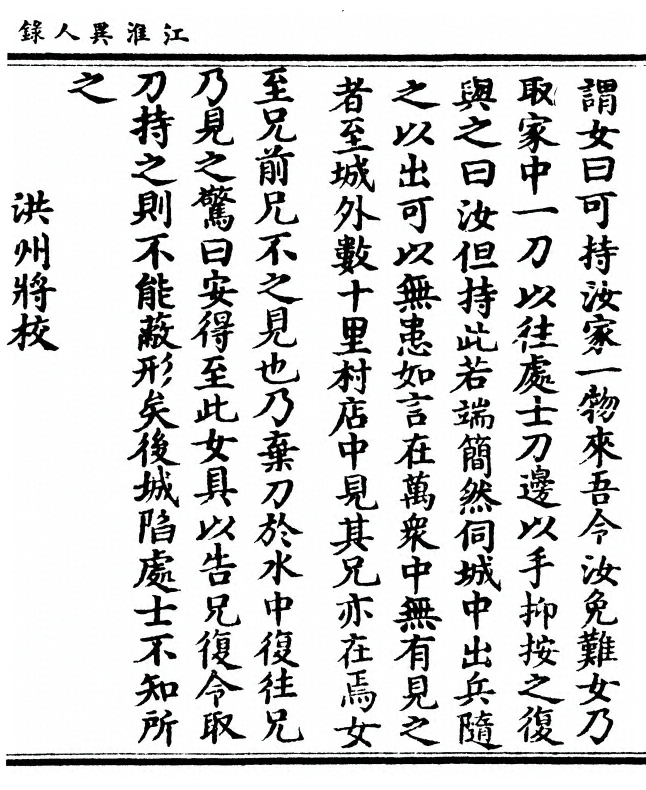 江淮異人錄
謂女曰可持汝家一物來吾令汝免難女乃
取家中一刀以往處士刀邊以手抑按之復
與之曰汝但持此若端簡然伺城中出兵隨
之以出可以無患如言在萬衆中無有見之
者至城外數十里村店中見其兄亦在焉女
至兄前兄不之見也乃棄刀於水中復往兄
乃見之驚曰安得至此女具以告兄復令取
刀持之則不能蔽形矣後城陷處士不知所
之
洪州將校